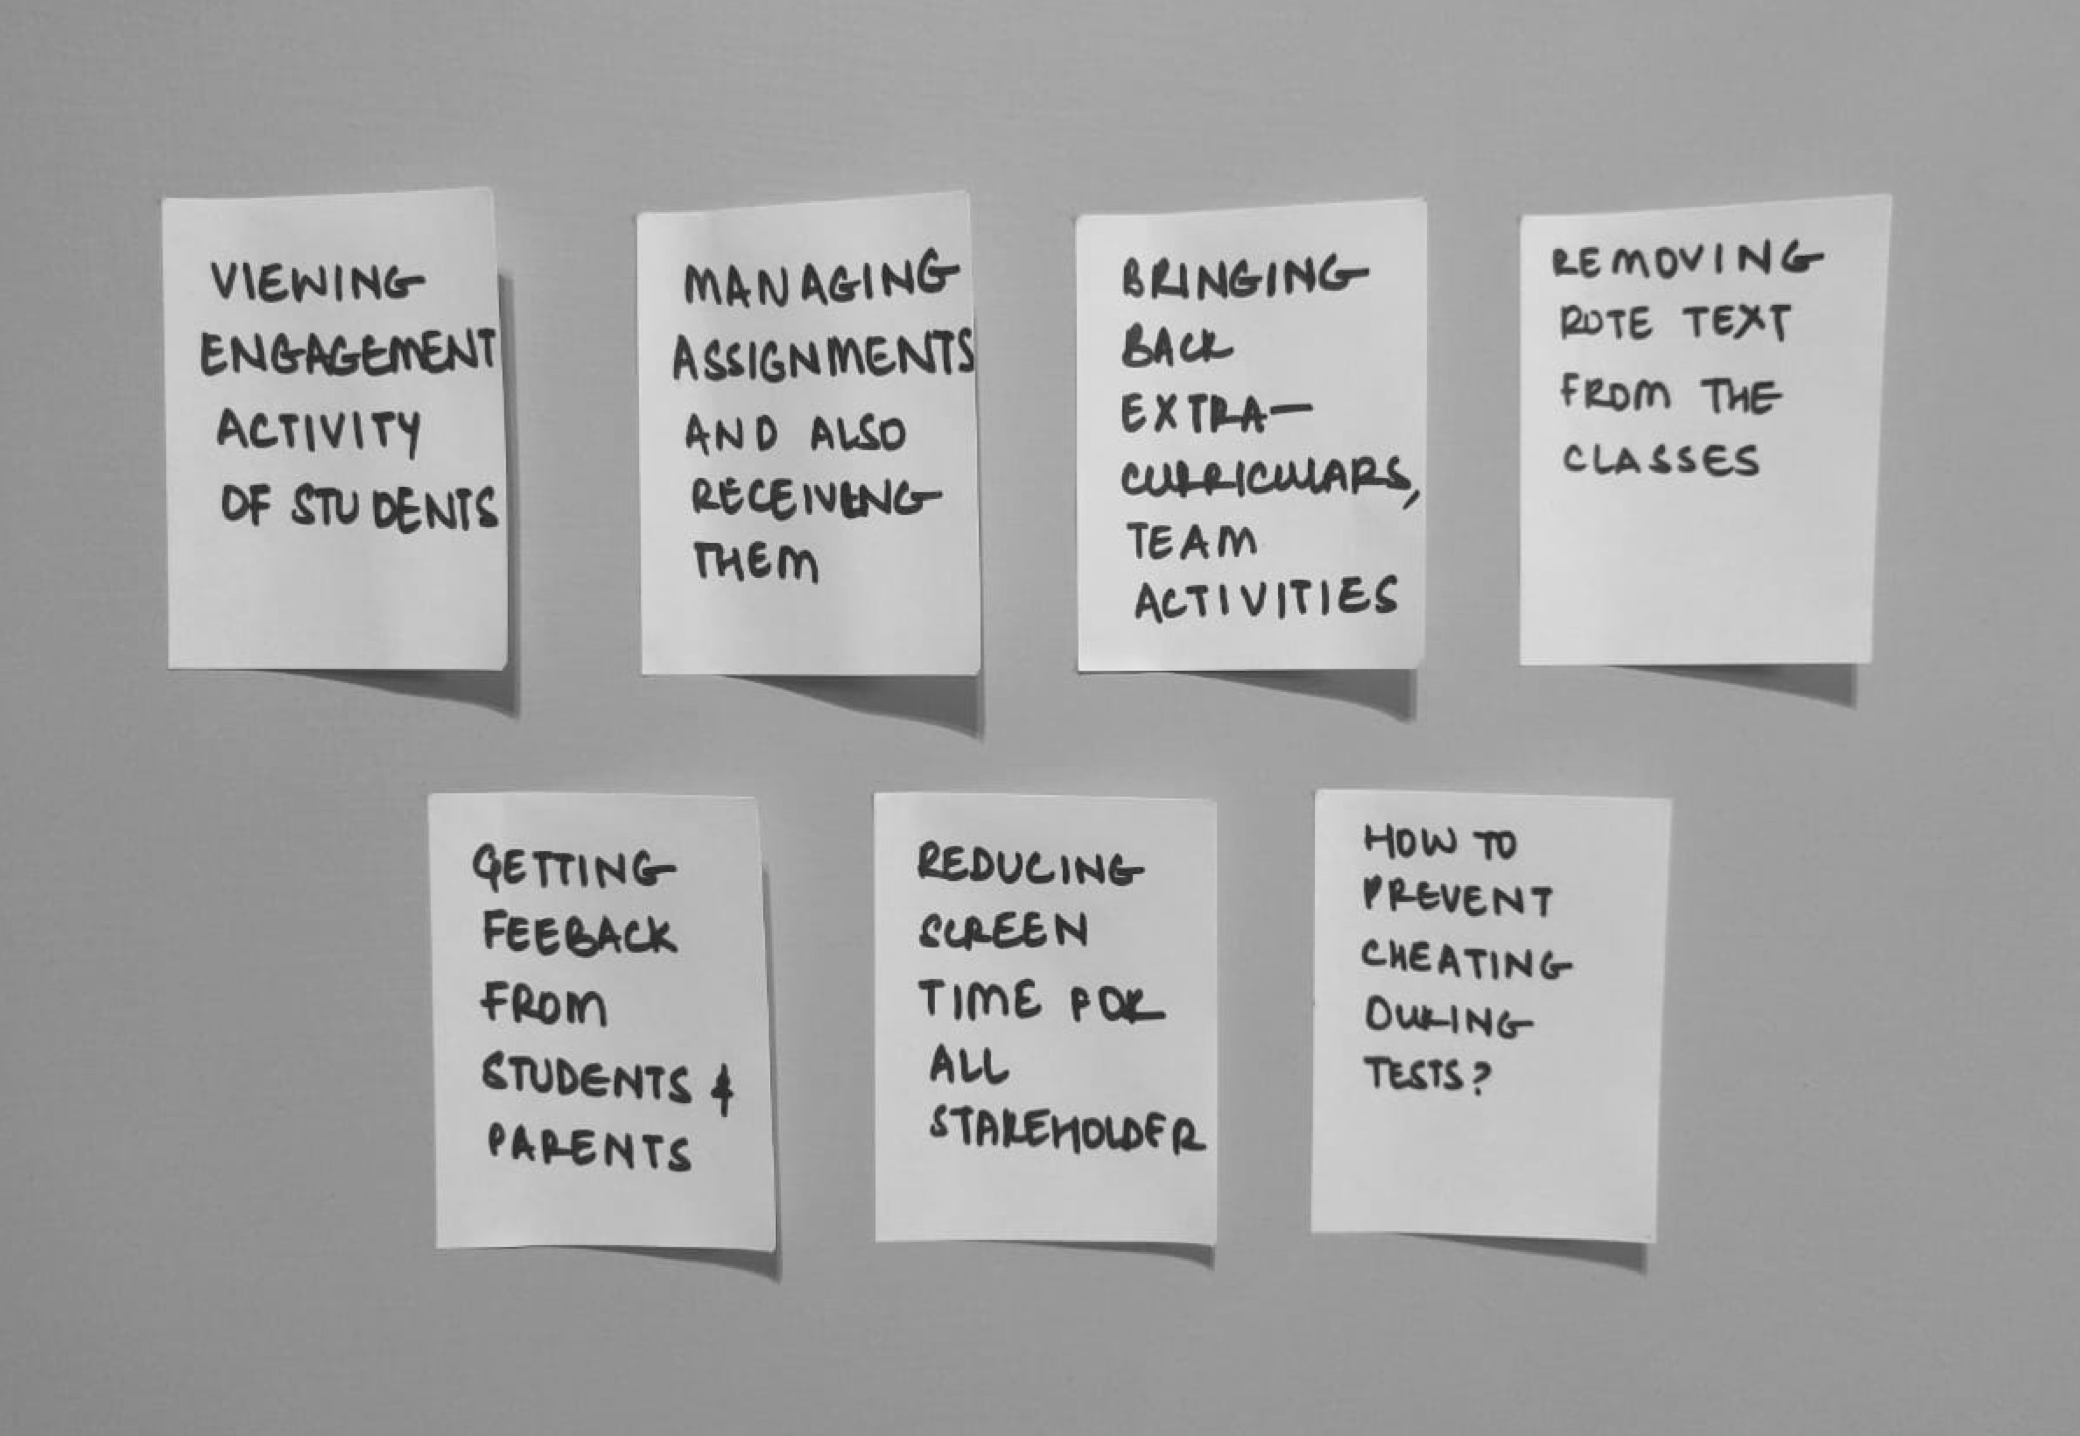 VIEWING
ENGAGEMENT
ACTIVITY
OF STUDENTS
MANAGING
ASSIGNMENTS
AND ALSO
RECEIVENG
THEM
BRINGING
BACK
EXTRA-
CURRICULARS,
TEAM
ACTIVITIES
REMOVING
ROTE TEXT
FROM THE
CLASSES
GETTING
FEEBACK
FROM
STUDENTS &
PARENTS
REDUCING
SCREEN
TIME FOR
ALL
STAKEHOLDER
HOW TO
PREVENT
CHEATING
DURING
TESTS?